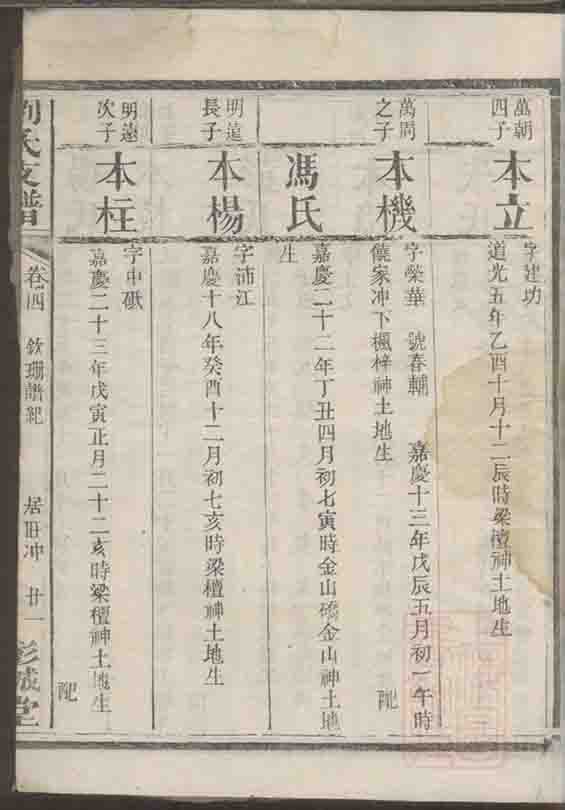 萬朝
四子
本立
字建功
道光五年乙酉十月十二辰時梁檀神土地生
萬問
之子
本機
字榮華 號春輔 嘉慶十三年戊辰五月初一午時
饒家冲下楓梓神土地生 配
馮氏
嘉慶二十二年丁丑四月初七寅時金山礄金山神土地
生
明遠
長子
本楊
字沛江
嘉慶十八年癸酉十二月初七亥時梁檀神土地生
明遠
次子
本柱
字中砥
嘉慶二十三年戊寅正月二十二亥時梁檀神土地生 配
劉氏支譜 卷四 欽珊譜紀 居旧冲 廿一 彭城堂